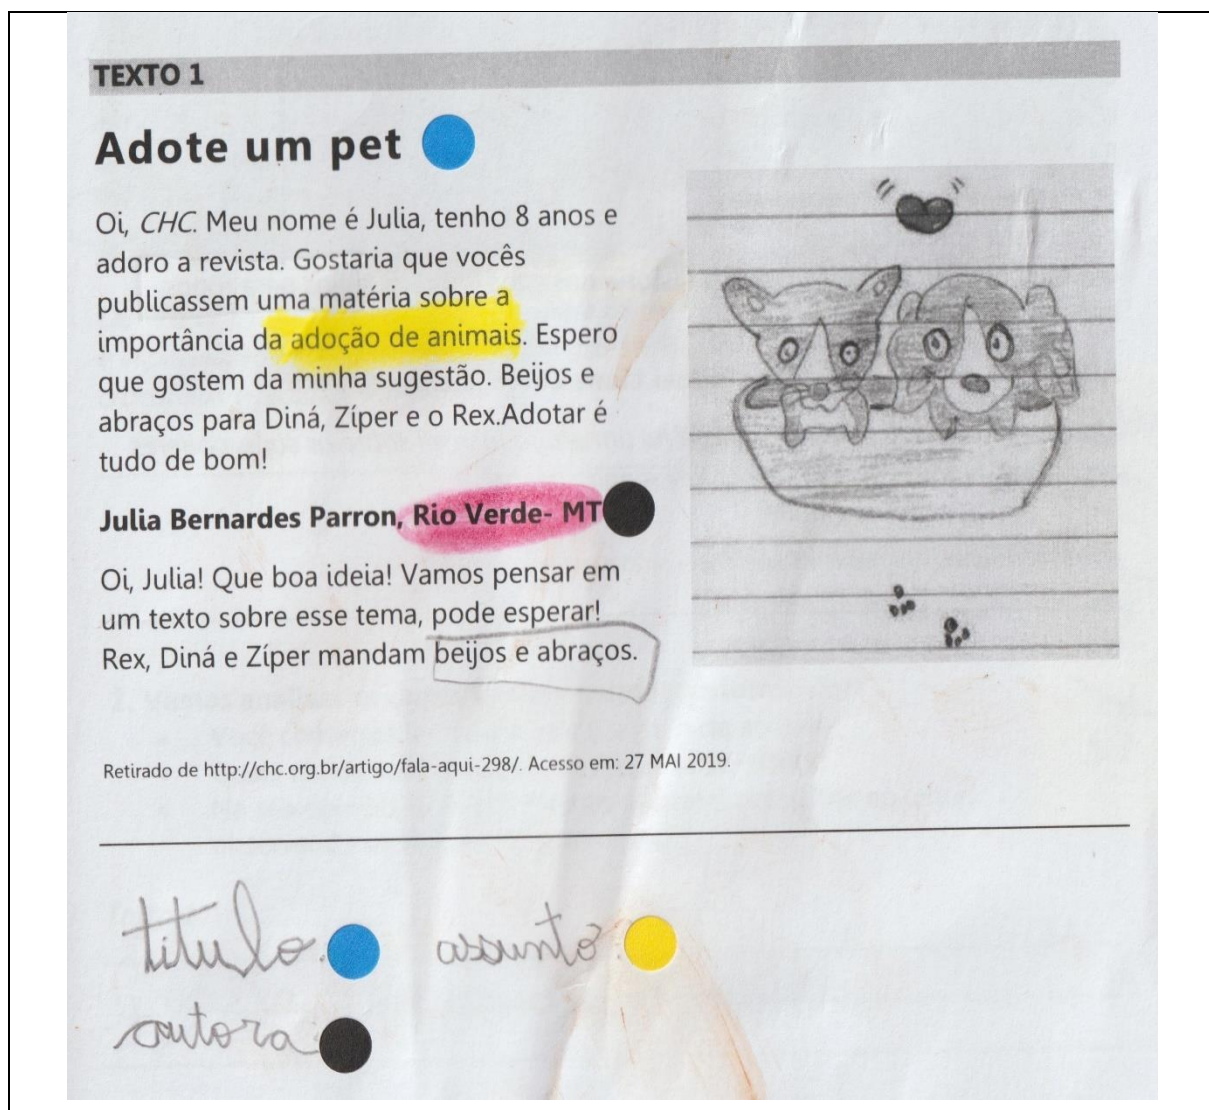 TEXTO 1
Adote um pet
Oi, CHC. Meu nome é Julia, tenho 8 anos e
adoro a revista. Gostaria que vocês
publicassem uma matéria sobre a
importância da adoção de animais. Espero
que gostem da minha sugestão. Beijos e
abraços para Diná, Zíper e o Rex.Adotar é
tudo de bom!
Julia Bernardes Parron, Rio Verde- MT
Oi, Julia! Que boa ideia! Vamos pensar em
um texto sobre esse tema, pode esperar!
Rex, Diná e Zíper mandam beijos e abraços.
Retirado de http://chc.org.br/artigo/fala-aqui-298/. Acesso em: 27 MAI 2019.
titulo: assunto:
autora: